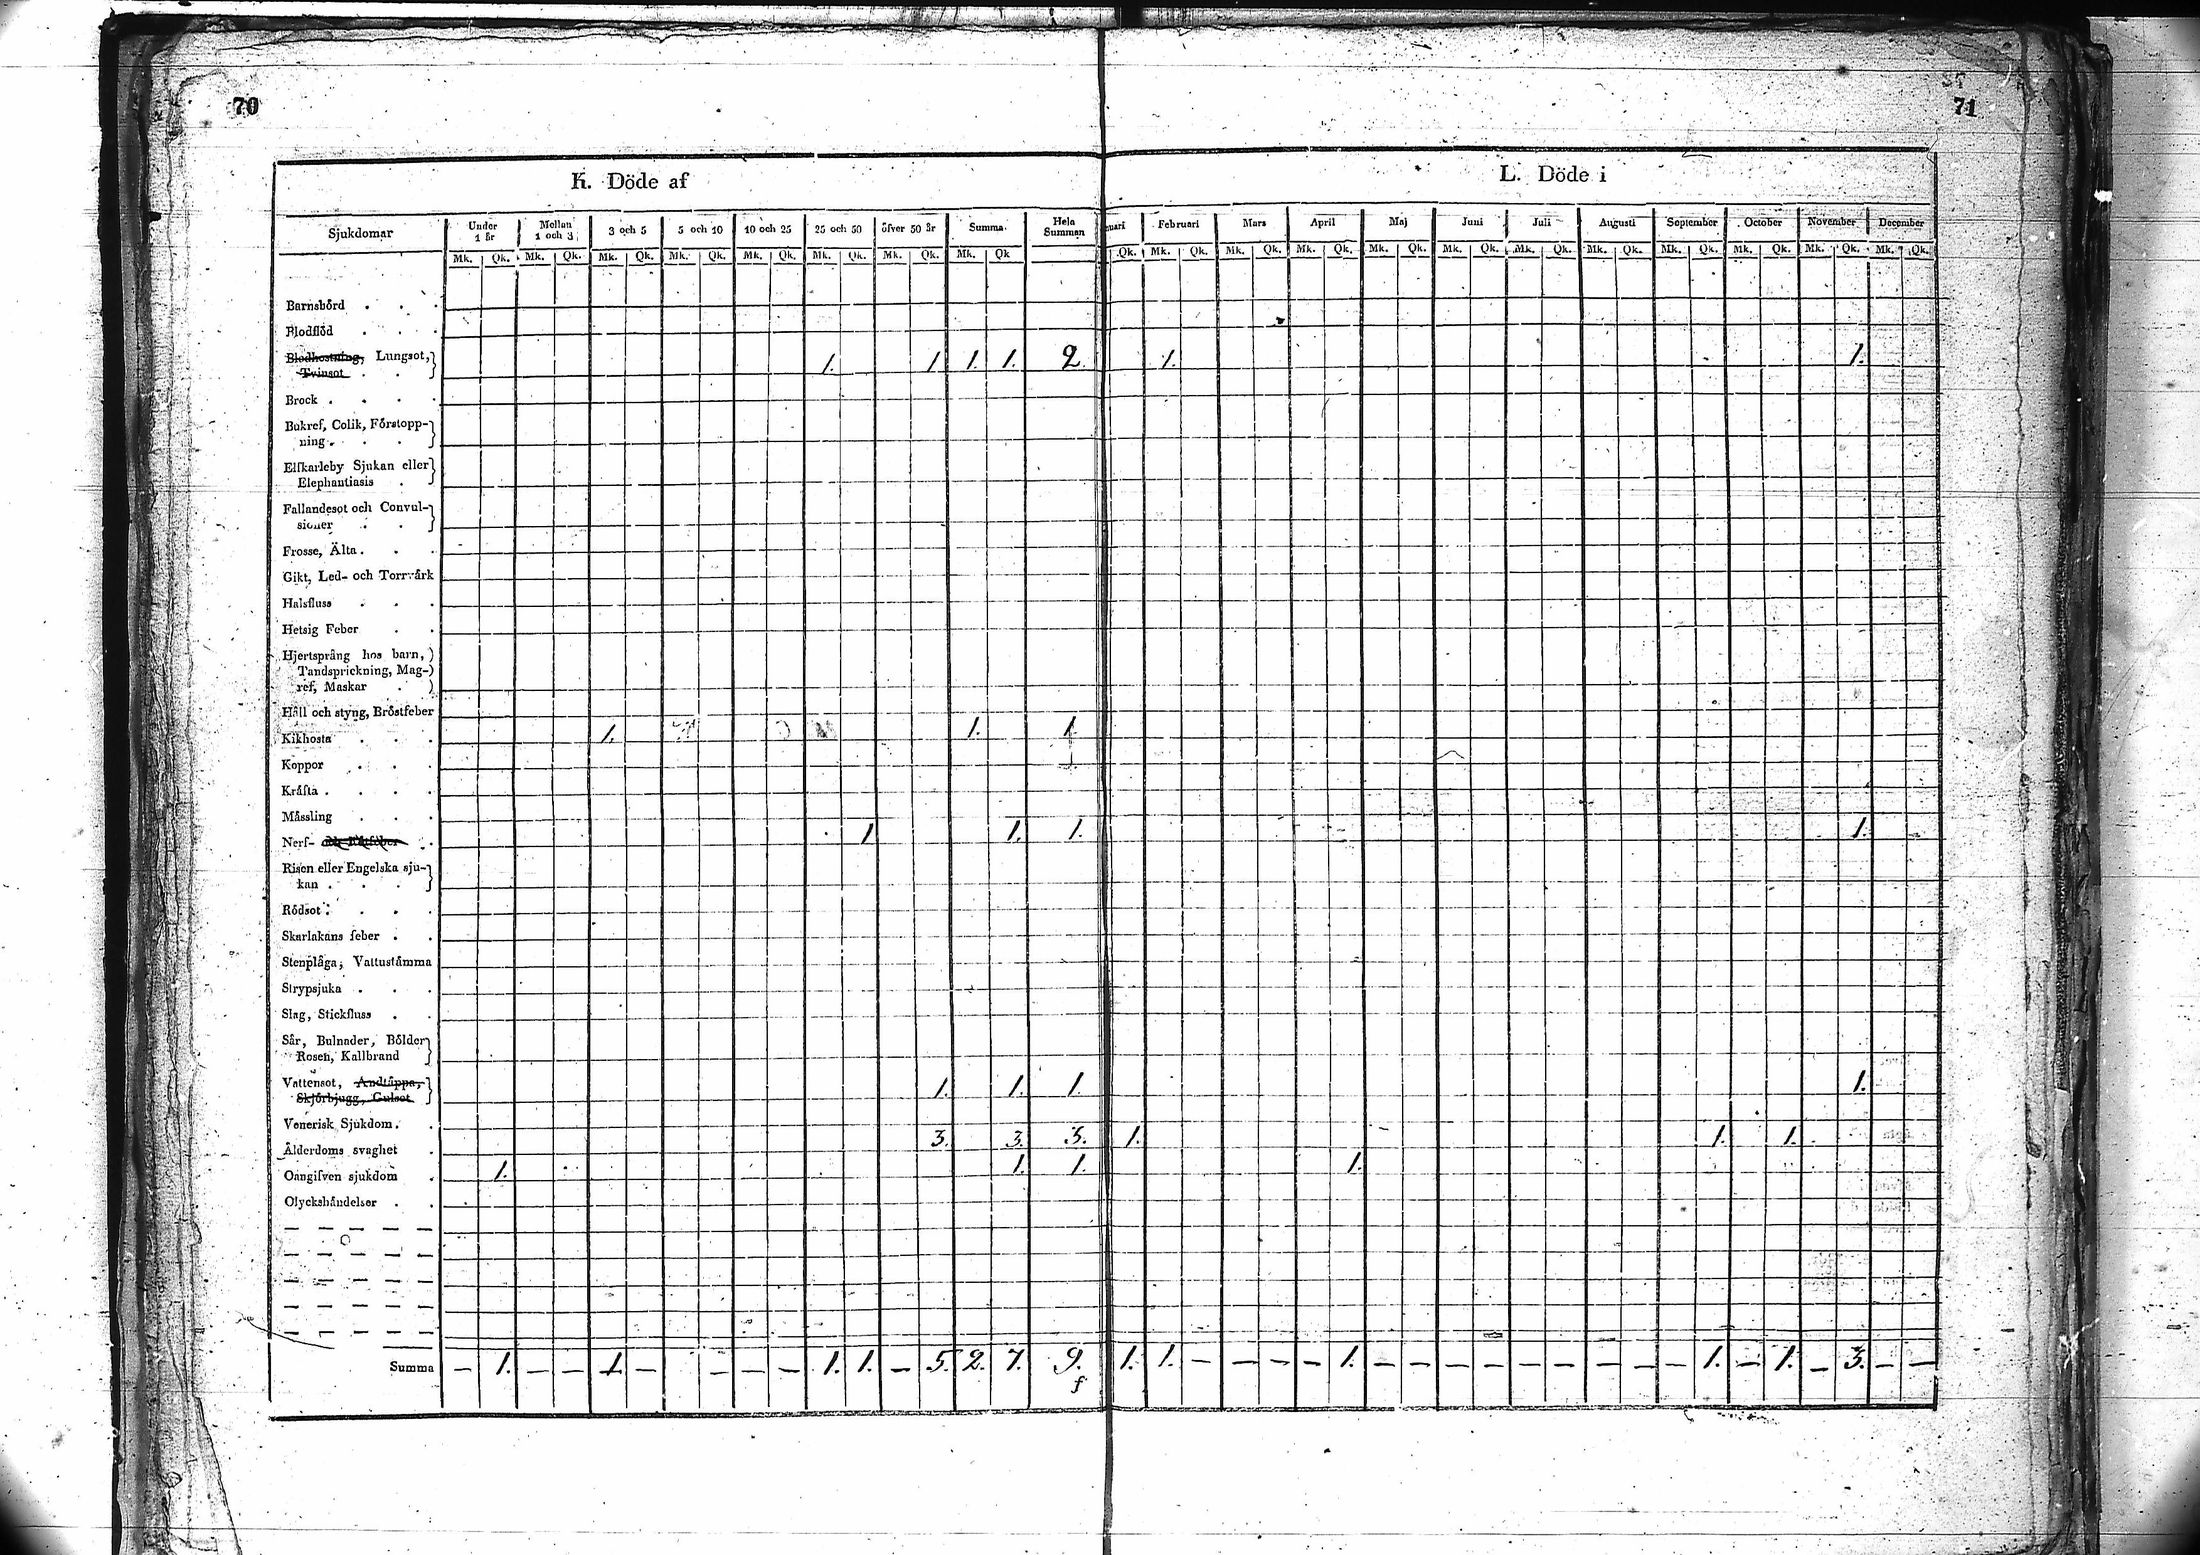 70
71
K. Döde af
L. Döde i
Sjukdomar Under 1 år Mellan 1 och 3 3 och 5 5 och 10 10 och 25 25 och 50 öfver 50 år Summa Hela Summan uari Februari Mars April Maj Juni Juli Augusti September October November December
Mk. Qk. Mk. Qk. Mk. Qk. Mk. Qk. Mk. Qk. Mk. Qk. Mk. Qk. Mk. Qk Qk. Mk. Qk. Mk. Qk. Mk. Qk. Mk. Qk. Mk. Qk. Mk. Qk. Mk. Qk. Mk. Qk. Mk. Qk. Mk. Qk. Mk. Qk.
Barnsbörd
Blodflöd
Blodhostning, Lungsot, 1. 1 1. 1. 2. 1. 1.
Tvinsot
Brock
Bukref, Colik, Förstopp-
ning
Elfkarleby Sjukan eller
Elephantiasis
Fallandesot och Convul-
sioner
Frosse, Älta
Gikt, Led- och Torrvärk
Halsfluss
Hetsig Feber
Hjertsprång hos barn,
Tandsprickning, Mag-
ref, Maskar
Håll och styng, Bröstfeber
Kikhosta 1. 1. 1.
Koppor
Kräfta
Mässling
Nerf- 1 1. 1. 1.
Risen eller Engelska sju-
kan
Rödsot
Skarlakans feber
Stenplåga, Vattustämma
Strypsjuka
Slag, Stickfluss
Sår, Bulnader, Bölder
Rosen, Kallbrand
Vattensot, Andtäppa, 1. 1. 1. 1.
Skjörbjugg, Gulsot
Venerisk Sjukdom
Ålderdoms svaghet 3. 3. 3. 1. 1. 1.
Oangifven sjukdom 1. 1. 1. 1.
Olyckshändelser
Summa — 1. — — 1 — — — — 1. 1. — 5. 2. 7. 9. 1. 1. — — — — 1. — — — — — — — — — 1. — 1. — 3. — —